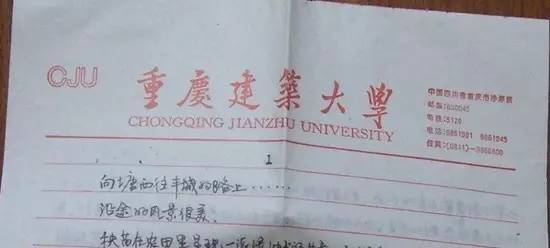 CJU
重慶建築大學
CHONGQING JIANZHU UNIVERSITY
中国四川省重庆市沙坪坝
邮编:630045
电挂:5120
电话:9861081 9861045
传真:(0811)-9866800
1
向塘西往丰城的路上……
沿途的风景很美。
秧苗在农田里呈现一派